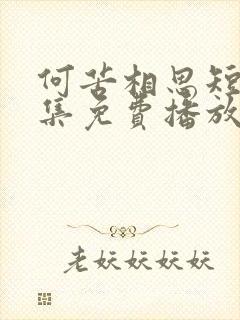 何苦相思短
集免費播放
老妖妖妖妖